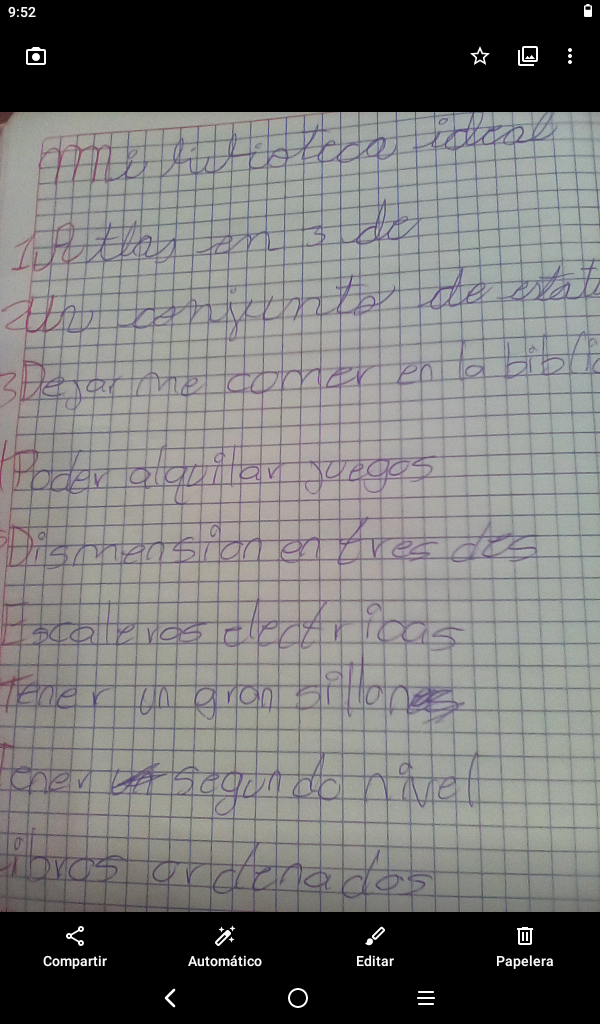 9:52
Mi biblioteca ideal
1 Atlas en 3 de
2 Un conjunto de estat
3 Dejarme comer en la biblio
Poder alquilar juegos
Dismension en tres des
Escaleros electricas
Tener un gran sillon
Tener segundo nivel
Libros ordenados
Compartir
Automático
Editar
Papelera